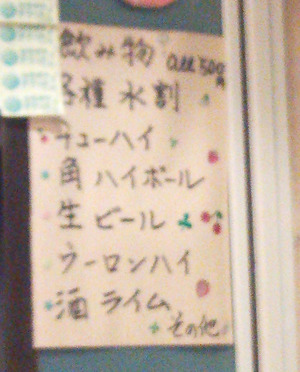 飲み物 all 500円
各種 水割
チューハイ
角 ハイボール
生 ビール
ウーロンハイ
酒 ライム
その他